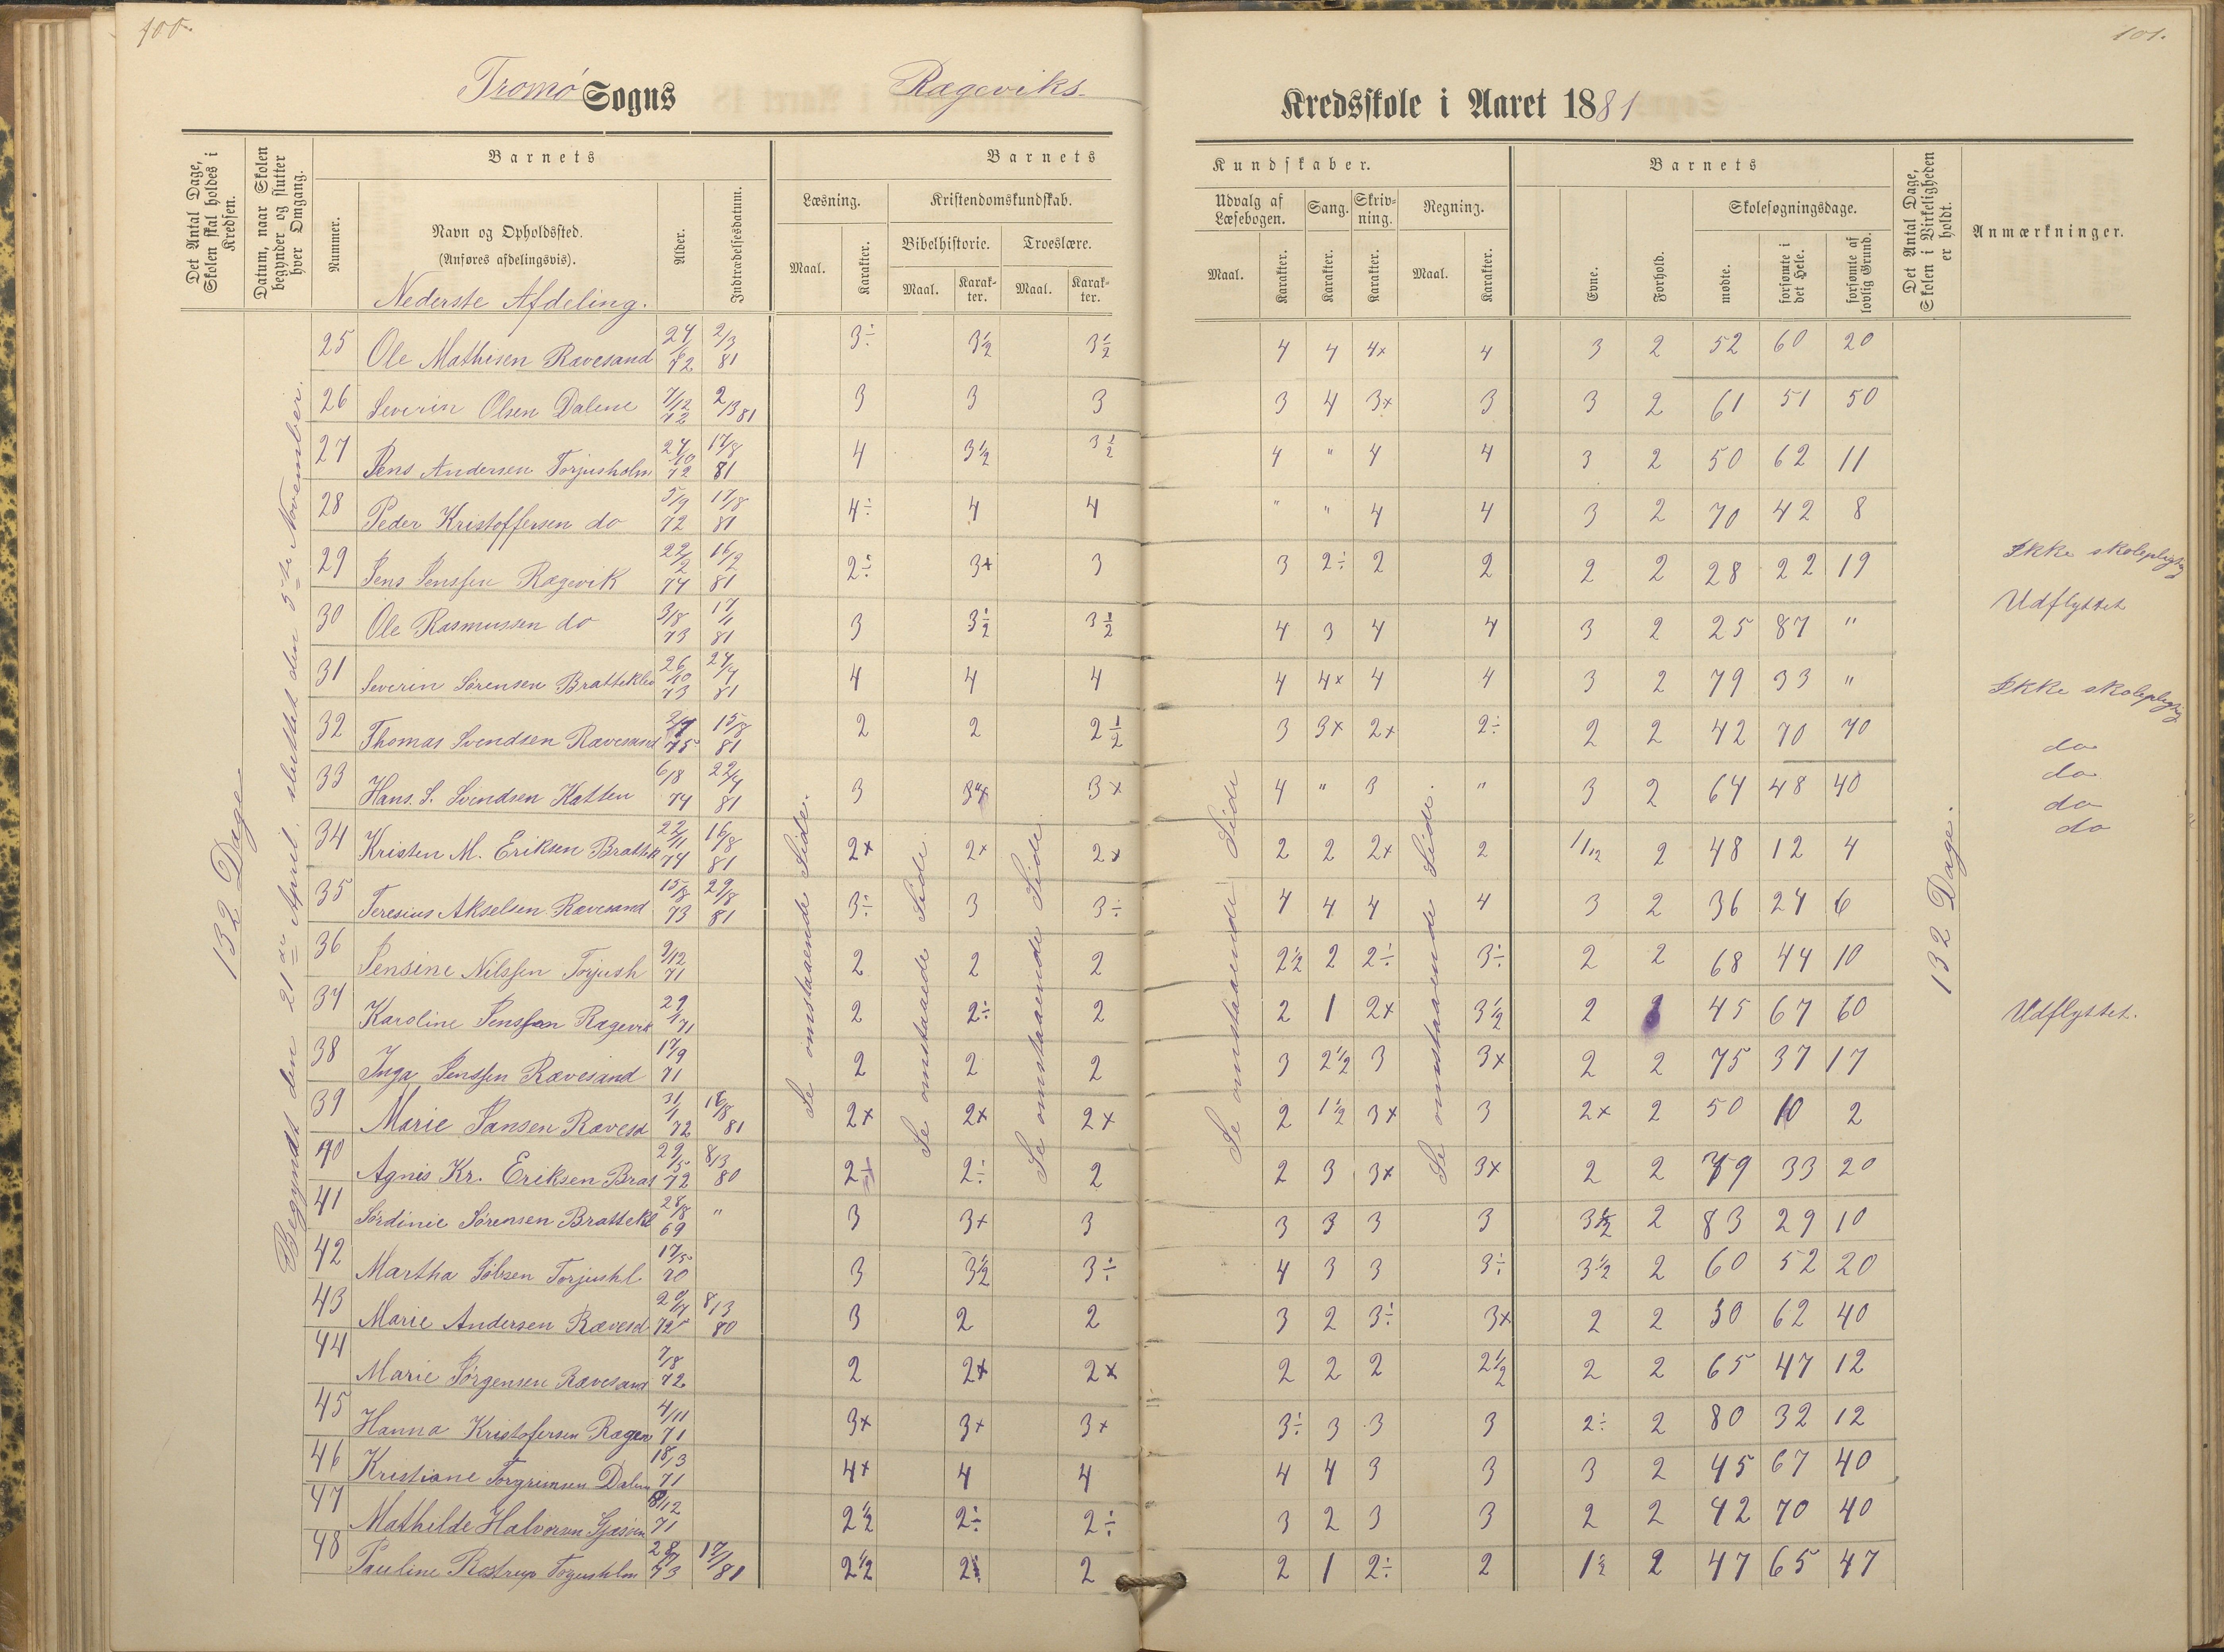 100.
101.
Tromø Sogns Rægeviks
Kredsskole i Aaret 1881
Det Antal Dage, Skolen skal holdes i Kredsen.
Datum, naar Skolen begynder og slutter hver Omgang.
Barnets
Nummer.
Navn og Opholdssted.
(Anføres afdelingsvis).
Nederste Afdeling.
Alder.
Indtrædelsesdatum.
Barnets
Læsning.
Maal.
Karakter.
Kristendomskundskab.
Bibelhistorie.
Maal.
Karakter.
Troeslære.
Maal.
Karakter.
Kundskaber.
Udvalg af Læsebogen.
Maal.
Karakter.
Sang.
Karakter.
Skrivning.
Karakter.
Regning.
Maal.
Karakter.
Barnets
Evne.
Forhold.
Skolesøgningsdage.
mødte.
forsømte i det Hele.
forsømte af lovlig Grund.
Det Antal Dage, Skolen i Virkeligheden er holdt.
Anmærkninger.
132 Dage
Begyndt den 21de April, sluttet den 5te November.
Se omstaaende Side.
Se omstaaede Side
Se omstaaende Side.
Se omstaaende Side
Se omstaaende Side.
132 Dage.
25 Ole Mathisen Rævesand 2/3 81 3÷ 3½ 3½ 4 4 4x 4 3 2 52 60 20
26 Severin Olsen Dalene 7/12 72 2/3 81 3 3 3 3 4 3x 3 3 2 61 51 50
27 Jens Andersen Torjusholm 24/10 72 17/8 81 4 3½ 3½ 4 " 4 4 3 2 50 62 11
28 Peder Kristoffersen do 5/9 72 17/8 81 4÷ 4 4 " " 4 4 3 2 70 42 8
29 Jens Jenssen Rægevik 22/2 74 16/2 81 2÷ 3x 3 3 2÷ 2 2 2 2 28 22 19 Ikke skolepligtig
30 Ole Rasmussen do 3/8 73 17/1 81 3 3½ 3½ 4 3 4 4 3 2 25 87 " Udflyttet
31 Severin Sørensen Bratteklev 26/10 73 81 4 4 4 4 4x 4 4 3 2 79 33 " Ikke skolepligtig
32 Thomas Svendsen Rævesand 75 15/8 81 2 2 2½ 3 3x 2x 2÷ 2 2 42 70 70 do
33 Hans. S. Svendsen Katten 6/8 74 22/4 81 3 3x 3x 4 " 3 " 3 2 64 48 40 do
34 Kristen M. Eriksen Brattek 22/11 74 16/8 81 2x 2x 2x 2 2 2x 2 2 48 12 4 do
35 Teresius Akselsen Rævesand 15/8 73 29/8 81 3÷ 3 3÷ 4 4 4 4 3 2 36 24 6 do
36 Jensine Nilssen Torjush 9/12 71 2 2 2 2½ 2 2÷ 3÷ 2 2 68 44 10
37 Karoline Jenssen Rægevik 71 2 2÷ 2 2 1 2x 3½ 2 45 67 60 Udflyttet.
38 Inga Jenssen Rævesand 17/9 71 2 2 2 3 2½ 3 3x 2 2 75 37 17
39 Marie Jansen Rævesd 31/1 72 18/8 81 2x 2x 2x 2 1½ 3x 3 2x 2 50 10 2
40 Agnis Kr. Eriksen Brat 29/5 72 8/3 80 2÷ 2÷ 2 2 3 3x 3x 2 2 79 33 20
41 Sørdinie Sørensen Brattekl 28/8 69 " 3 3x 3 3 3 3 3 3½ 2 83 29 10
42 Martha Jølsen Torjushl 17/5 70 3 3½ 3÷ 4 3 3 3÷ 3½ 2 60 52 20
43 Marie Andersen Rævesd 72 8/3 80 3 2 2 3 2 3÷ 3x 2 2 50 62 40
44 Marie Jørgensen Rævesand 7/8 72 2 2x 2x 2 2 2 2½ 2 2 65 47 12
45 Hanna Kristofersen Rægev 4/11 71 3x 3x 3x 3÷ 3 3 3 2÷ 2 80 32 12
46 Kristiane Torgrimsen Dalen 18/3 71 4x 4 4 4 4 3 3 3 2 45 67 40
47 Mathilde Halvorsen 8/12 71 2½ 2÷ 2÷ 3 2 3 3 2 2 42 70 40
48 Pauline Rostrup Torjushlm 73 17/1 81 2½ 2 2 1 2÷ 2 1½ 2 47 65 47